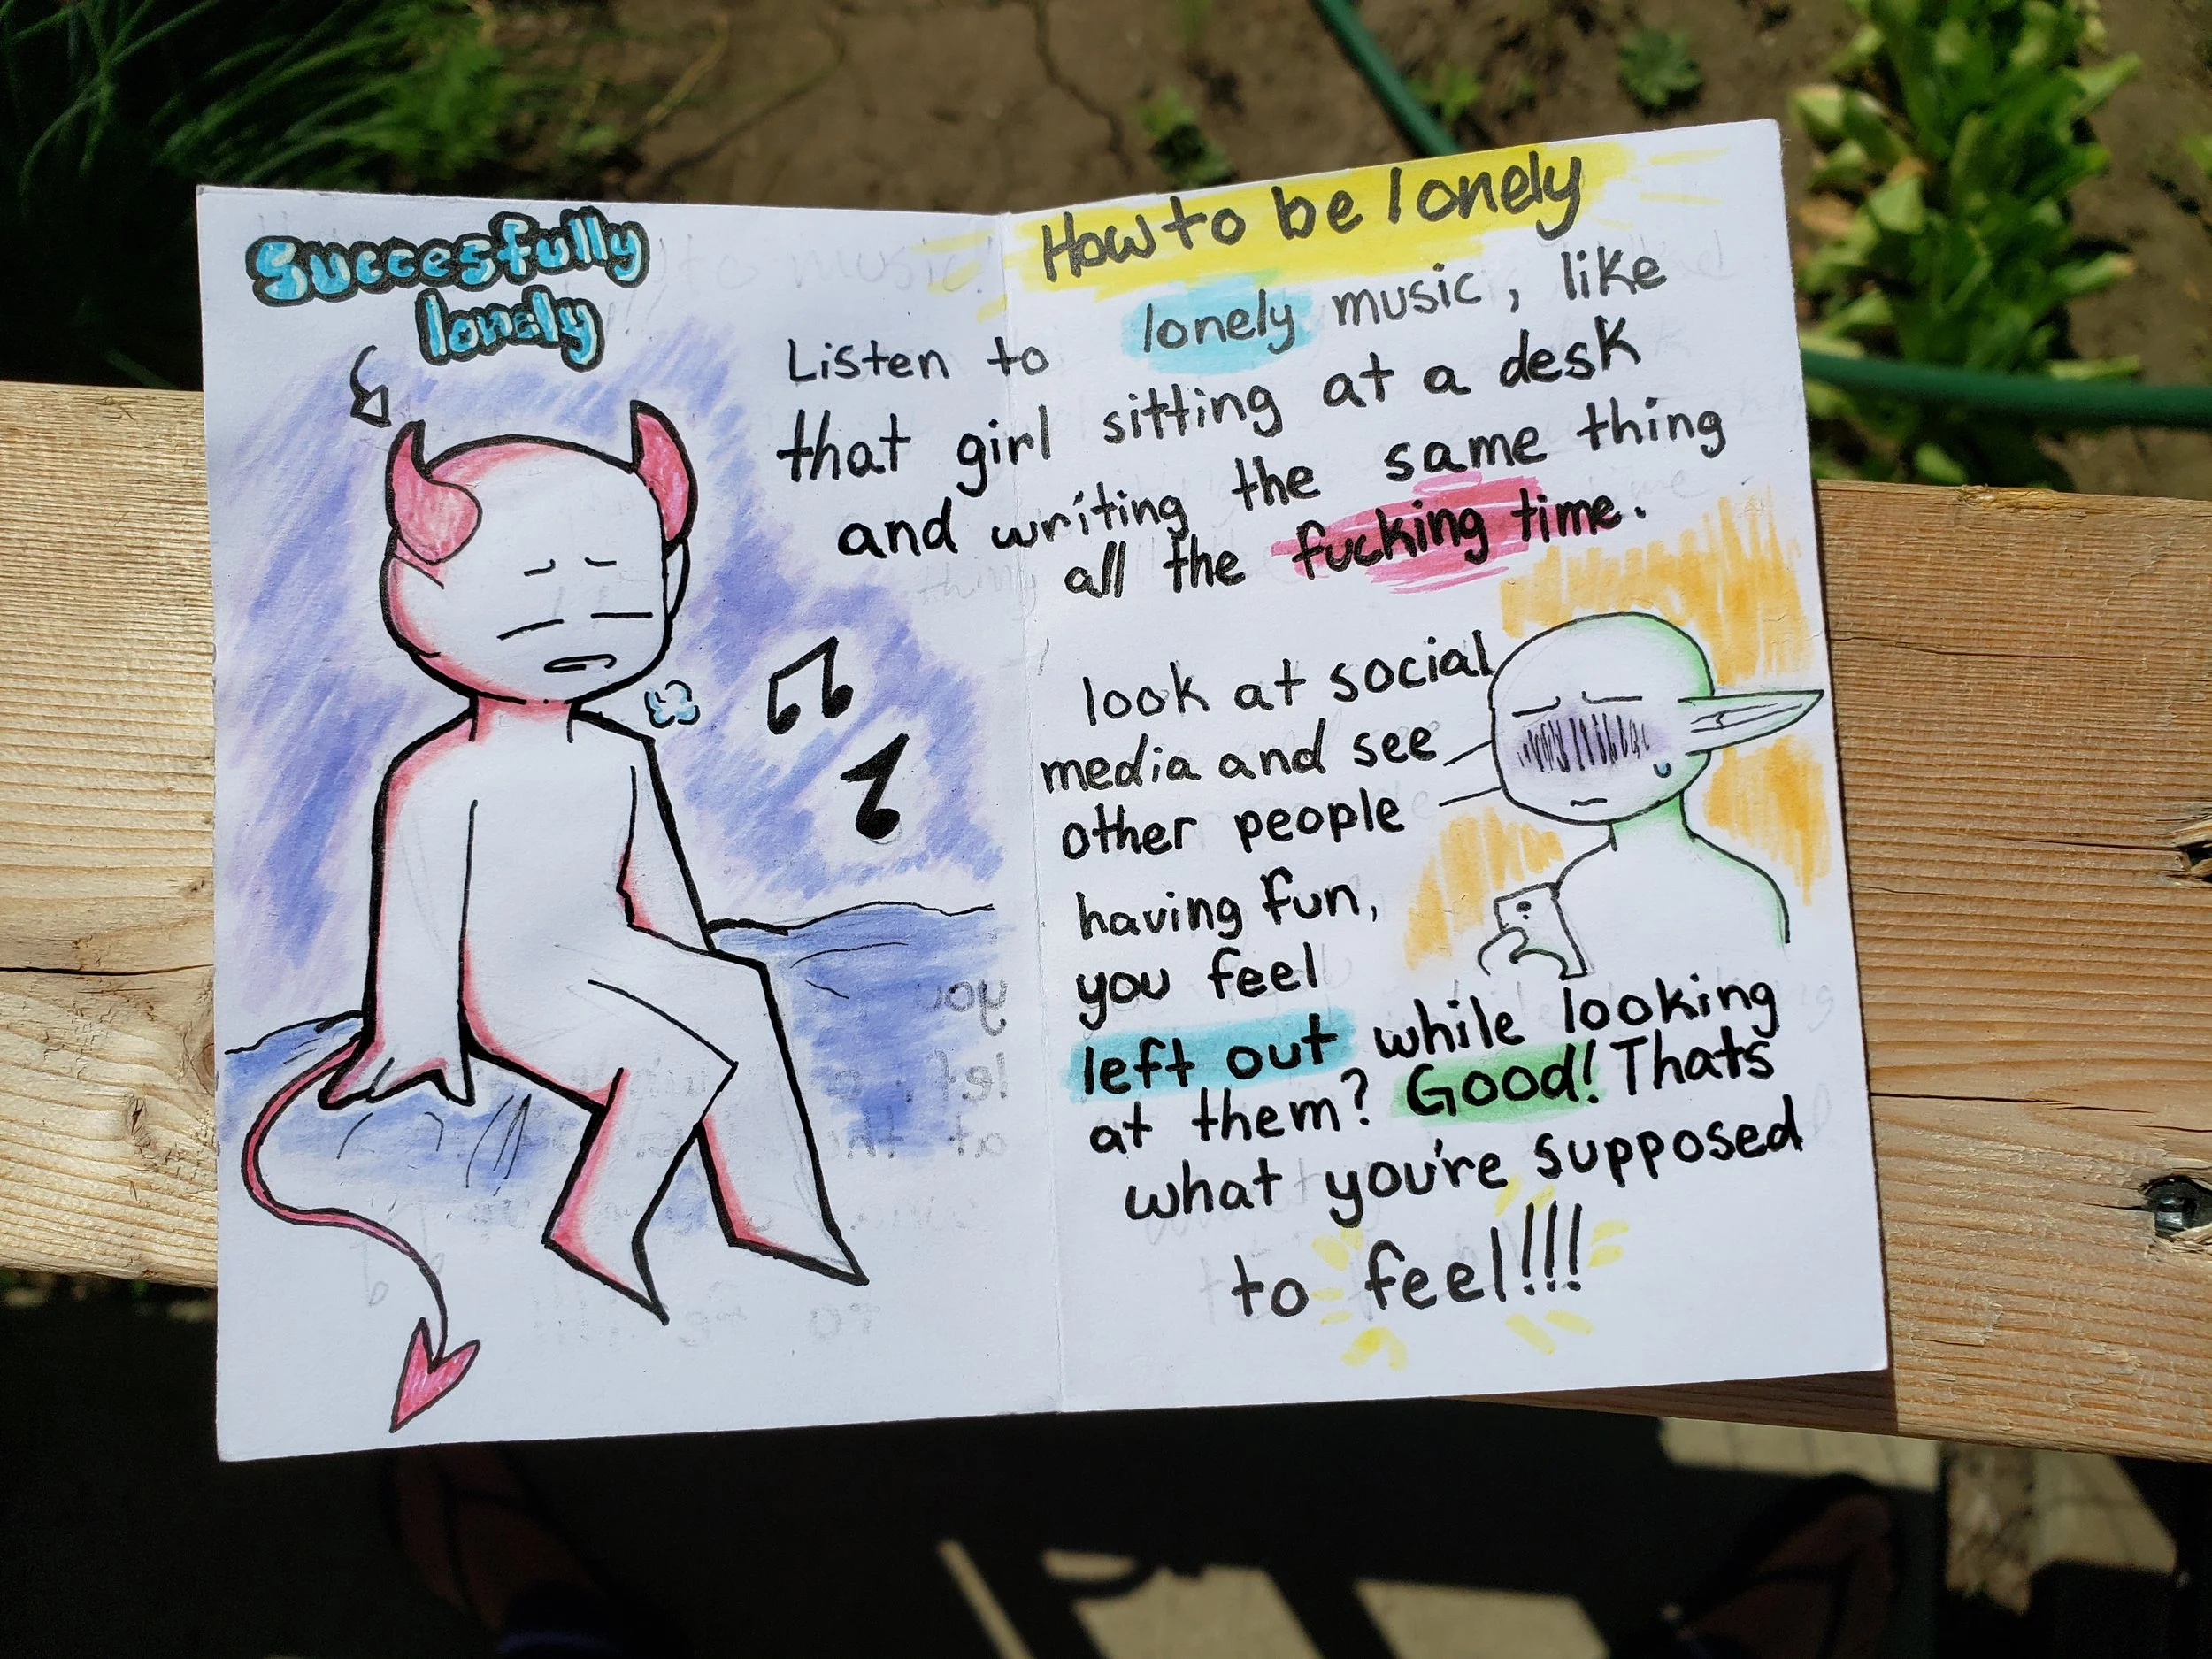 Succesfully
lonely
How to be lonely
Listen to lonely music, like
that girl sitting at a desk
and writing the same thing
all the fucking time.
look at social
media and see
other people
having fun,
you feel
left out while looking
at them? Good! Thats
what you're supposed
to feel!!!